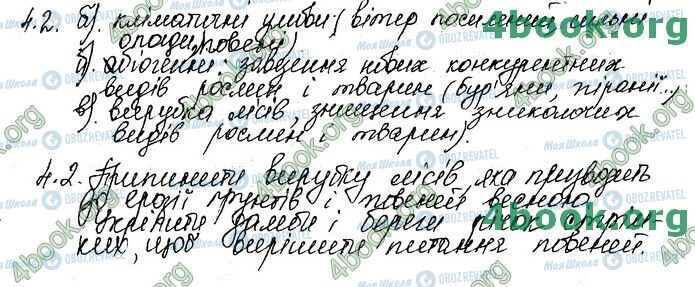 4.2. б). кліматичні умови (вітер посилений сильні
опади, повені)
б) абіогенні: завезення нових конкурентних
видів рослин і тварин (бур'яни, піранії...)
в) вирубка лісів, знищення зникаючих
видів рослин, тварин).
4.2. Припинити вирубку лісів, яка призводить
до ерозії ґрунтів і повеней весною.
Укріпити дамби і береги річок
ких, щоб вирішити питання повеней
4book.org
МояШкола
OBOZREVATEL